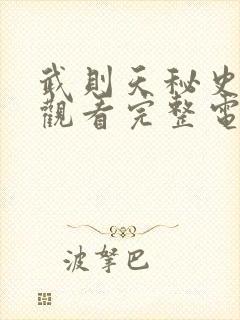 武則天秘史
觀看完整電
波拏巴